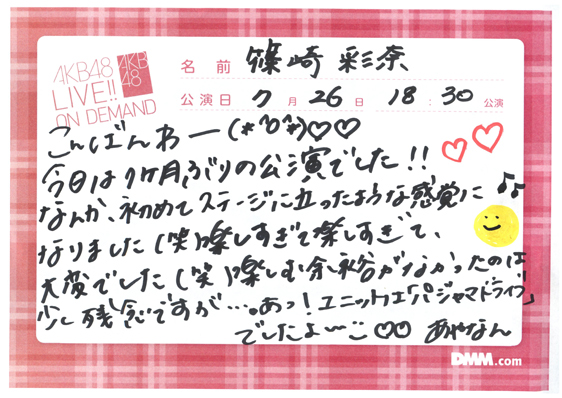 AKB48
LIVE!!
ON DEMAND
AKB
48
名前 篠崎彩奈
公演日 7月26日 18:30公演
こんばんわー(*^O^*)♡♡
今日は1ケ月ぶりの公演でした!!
なんか、初めてステージに立ったような感覚に♪♪
なりました(笑)楽しすぎて楽しすぎて、
大変でした(笑)楽しむ余裕がなかったのは
少し残念ですが…。あっ!ユニットは「パジャマドライブ」
でしたよ〜ん♡♡ あやなん
DMM.com